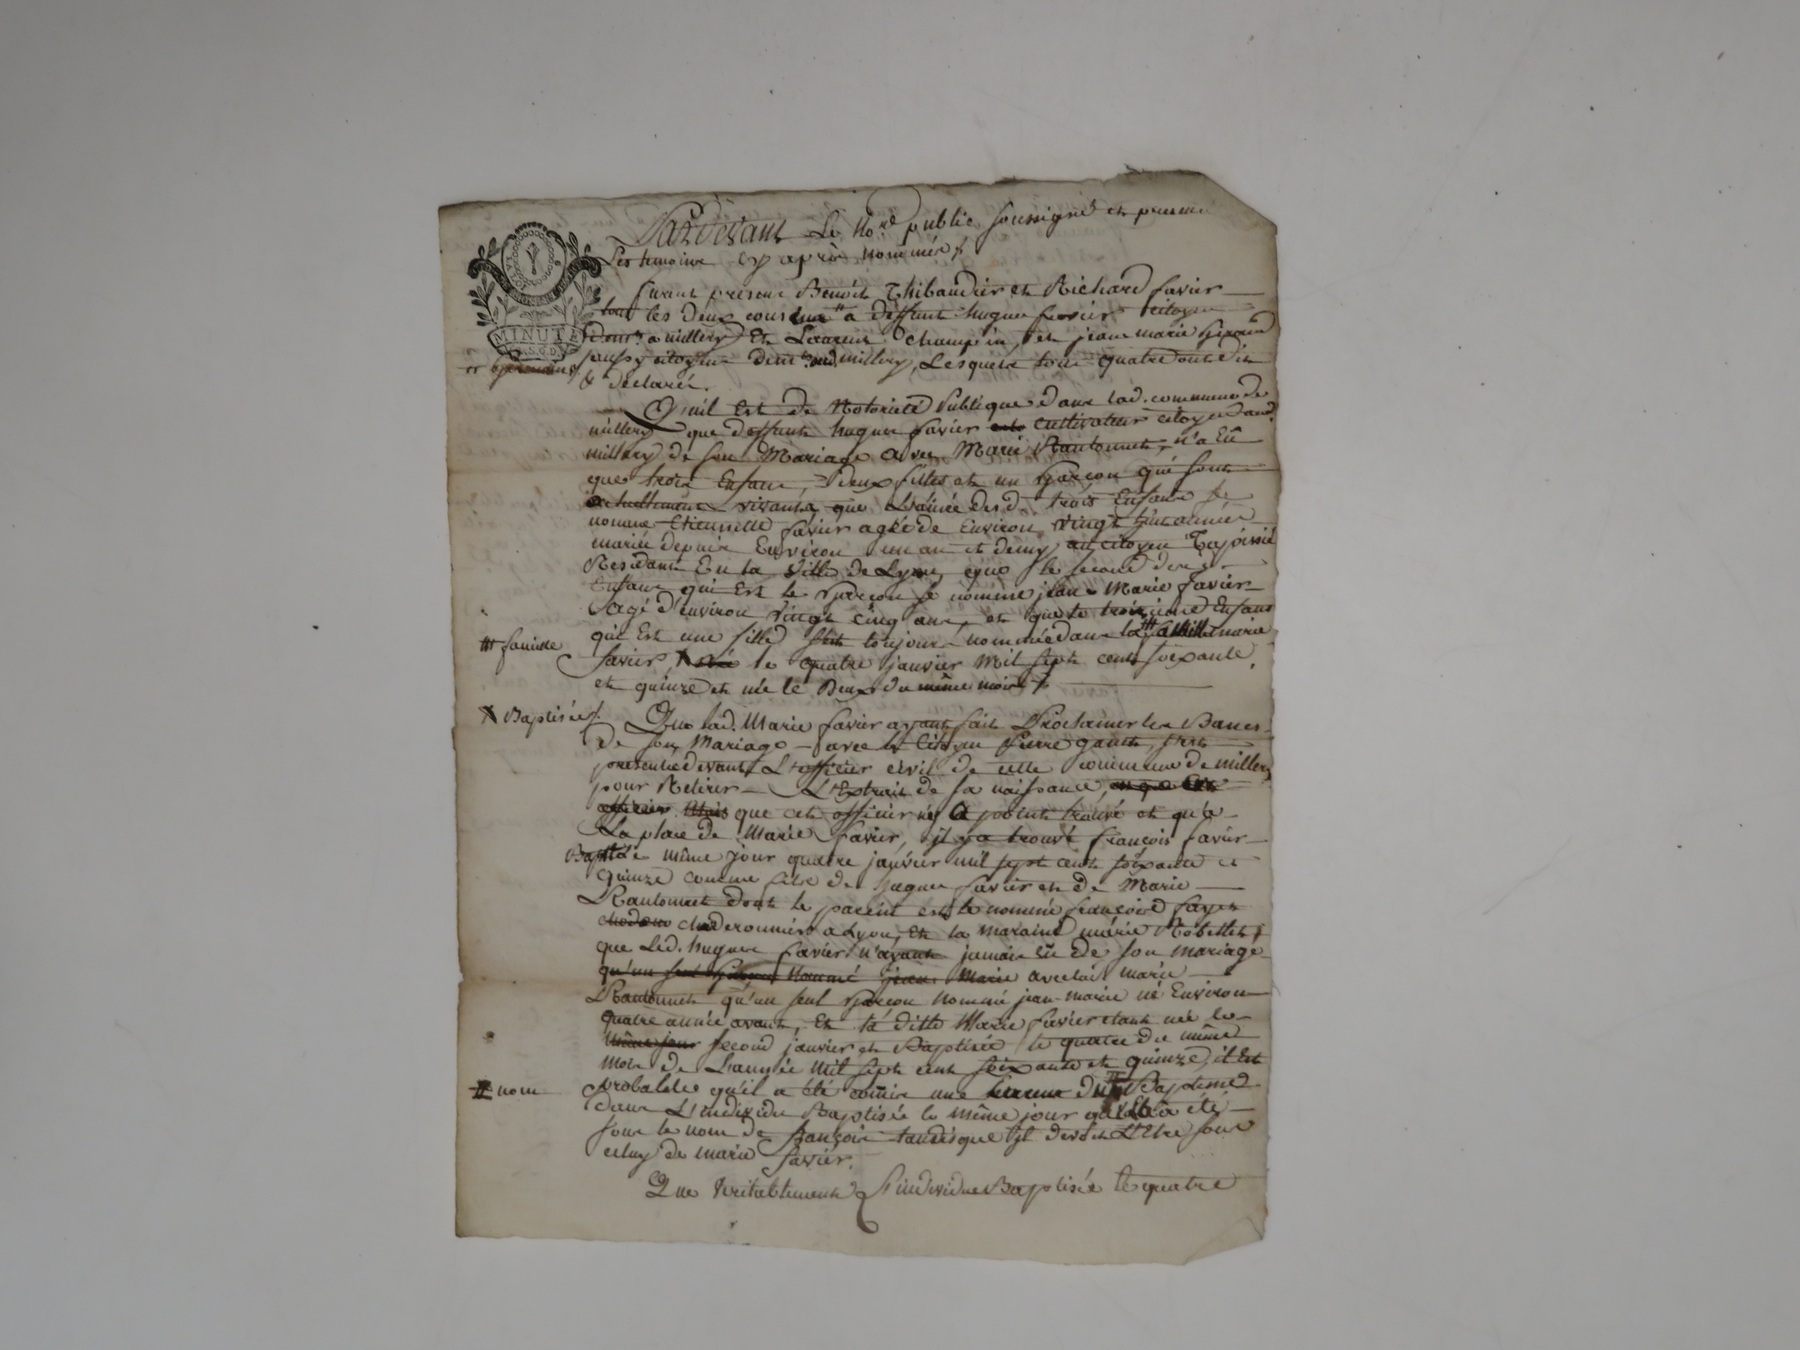 Pardevant Le No.re public soussigné et presence
Les temoins cy après nommés
furent présent Benoit Thibaudier et Richard favier
tous les deux cousins a deffunt hugue favier citoyen
MINUTE
a millery Et Laurent Champin, et jean marie
aussy citoyens millery, Lesquels tous quatre ont dit
& déclaré.
Qu'il Est de Notorieté Publique dans lad. commune de
millery que deffunt hugue favier cultivateur citoyen
millery de son Mariage avec Marie Rantonnet, n'a Eû
que trois Enfans, deux filles et un garçon qui sont
actuellement vivants, que L'ainée desd. trois Enfans se
nomme Etiennette favier agée de Environ vingt huit années
mariée depuis Environ un an et demy au citoyen Tapissié
Residant En la Ville de Lyon, que le second des
Enfans qui Est le garçon se nomme jean-Marie favier
agé d'environ vingt cinq ans, et que le troisieme Enfant
qui Est une fille s'est toujours nommée dans la marie
famille
favier, née le quatre janvier Mil sept cent soixante
et quinze et née le Deux du même mois
Baptisée
Que lad. Marie favier ayant fait Proclamer les Bancs
de son Mariage avec le Citoyen Pierre s'est
presentée devant L'officier civil de cette commune de millery
pour Retirer L'Extrait de sa naissance,
officier Mais que cet officier ne L'a point trouvé et qu'a
La place de Marie favier, il y a trouvé françois favier
Baptisé le même jour quatre janvier mil sept cent soixante et
quinze comme fils de hugue favier et de Marie
Rantonnet dont le parein est le nommé françois
chaderonnier a Lyon, Et la maraine marie Robellet
que Led. hugue favier n'ayant jamais Eû de son mariage
qu'un seul garçon Nommé jean Marie avec lad. marie
Rantonnet qu'un seul garçon nommé jean-marie né Environ
quatre année avant, Et la ditte Marie favier etant née le
même jour second janvier et Baptisée le quatre du même
mois de L'année mil sept cent soixante et quinze, il Est
nom
probable qu'il a été comis une Erreur du Baptême
dans L'individu Baptisée le même jour a été
sous le nom de françois tandis que il devoit L'Etre sous
celuy de marie favier.
Que veritablement L'individue Baptisée le quatre